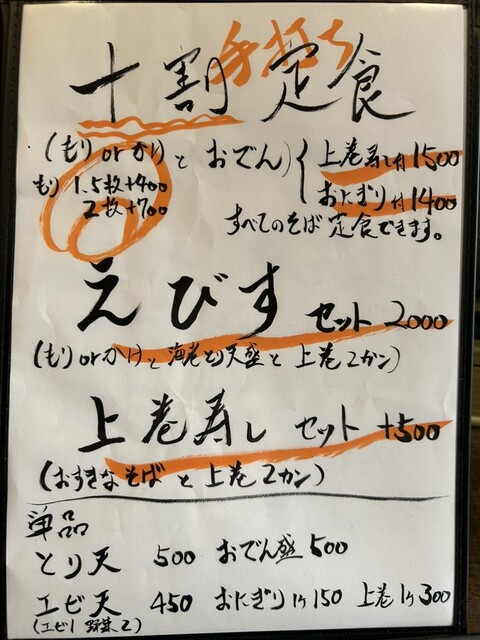 手打ち
十割定食
(もりorかけとおでん) 上巻寿し付 1500
おにぎり付 1400
もり 1.5枚+400
2枚+700
すべてのそば定食できます。
えびす セット 2000
(もりorかけと海老とり天盛と上巻2カン)
上巻寿し セット +500
(おすきなそばと上巻2カン)
単品
とり天 500 おでん盛 500
エビ天 450 おにぎり1ケ150 上巻1ケ300
(エビ1 野菜2)